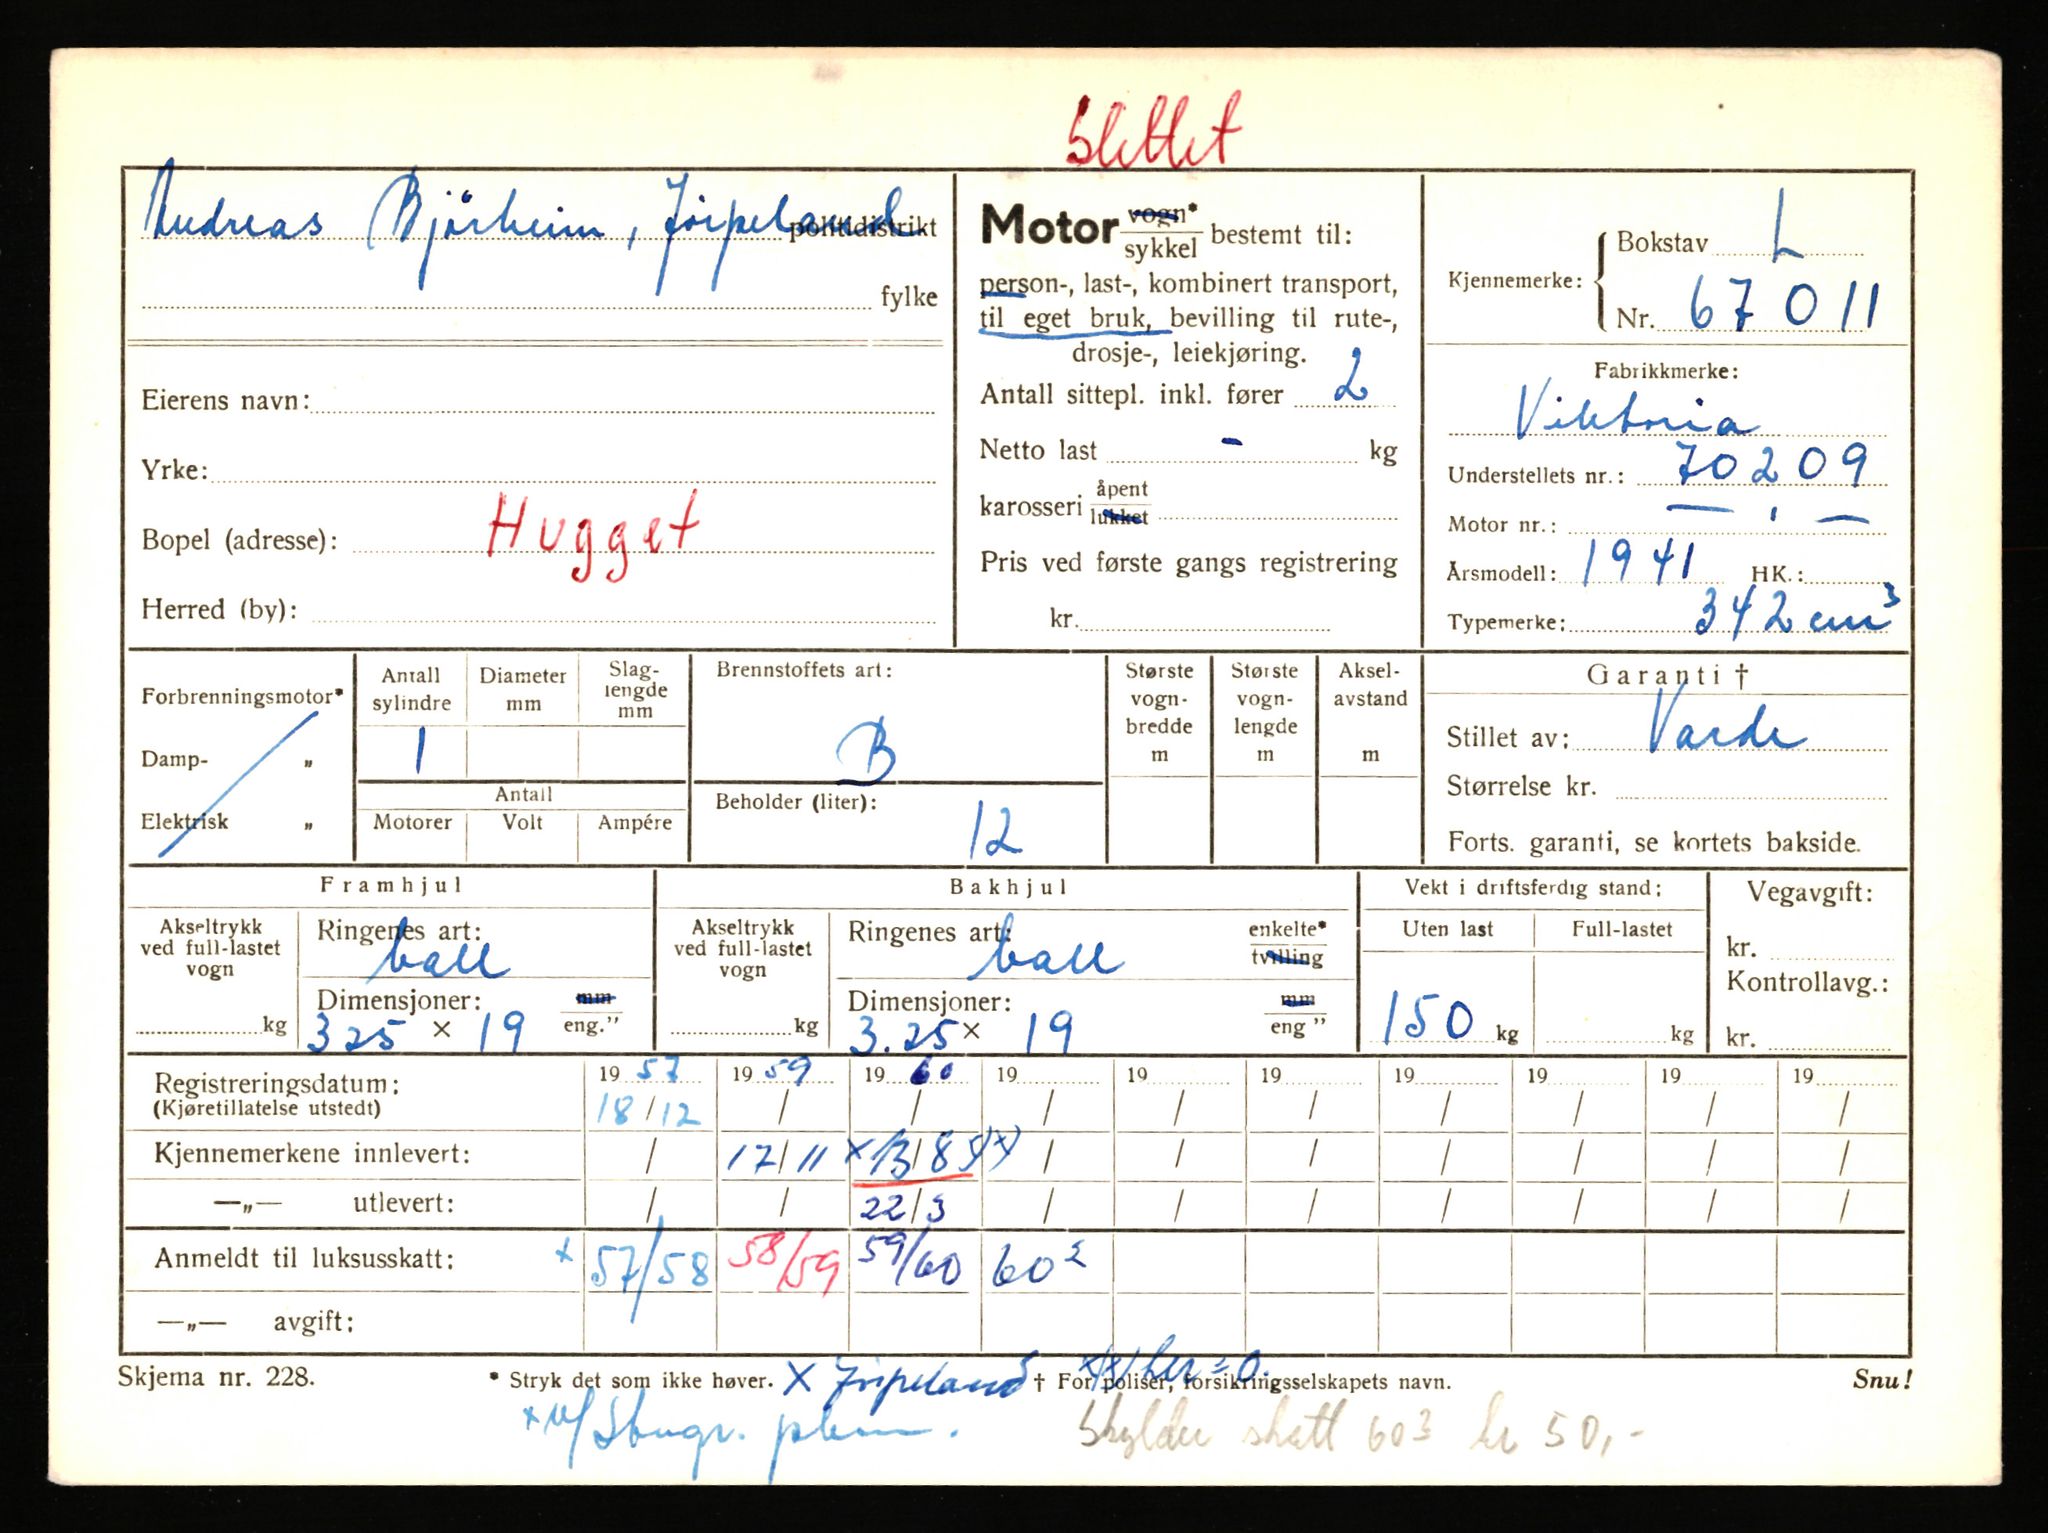 Slettet
Andreas Bjørheim, Jørpeland politidistrikt
fylke
Eierens navn:
Yrke:
Bopel (adresse): Hugget
Herred (by):
Motor vogn* sykkel bestemt til:
person-, last-, kombinert transport,
til eget bruk, bevilling til rute-,
drosje-, leiekjøring.
Antall sittepl. inkl. fører 2
Netto last - kg
karosseri åpent lukket
Pris ved første gangs registrering
kr.
Kjennemerke: Bokstav L
Nr. 67011
Fabrikkmerke:
Viktoria
Understellets nr.: 70209
Motor nr.: — " —
Årsmodell: 1941 HK.:
Typemerke: 342 cm³
Forbrenningsmotor*
Damp- „
Elektrisk „
Antall sylindre
Diameter mm
Slag-lengde mm
1
Antall
Motorer Volt Ampére
Brennstoffets art:
B
Beholder (liter):
12
Største vogn-bredde m
Største vogn-lengde m
Aksel-avstand m
Garanti †
Stillet av: Varde
Størrelse kr.
Forts. garanti, se kortets bakside.
Framhjul
Akseltrykk ved full-lastet vogn
kg
Ringenes art:
ball
Dimensjoner: mm eng."
325 × 19
Bakhjul
Akseltrykk ved full-lastet vogn
kg
Ringenes art: enkelte* tvilling
ball
Dimensjoner: mm eng "
3.25 × 19
Vekt i driftsferdig stand:
Uten last Full-lastet
150 kg kg
Vegavgift:
kr.
Kontrollavg.:
kr.
Registreringsdatum: 1957 1959 1960 19 19 19 19 19 19 19
(Kjøretillatelse utstedt) 18/12 / / / / / / / / /
Kjennemerkene innlevert: / 17/11 x 13/8 x/x) / / / / / / /
—„— utlevert: / / 22/3 / / / / / / /
Anmeldt til luksusskatt: x 57/58 58/59 59/60 60²
—„— avgift:
Skjema nr. 228.
* Stryk det som ikke høver. X Jørpeland
† For poliser, forsikringsselskapets navn.
Snu!
Skylder skatt 60³ kr 50,-